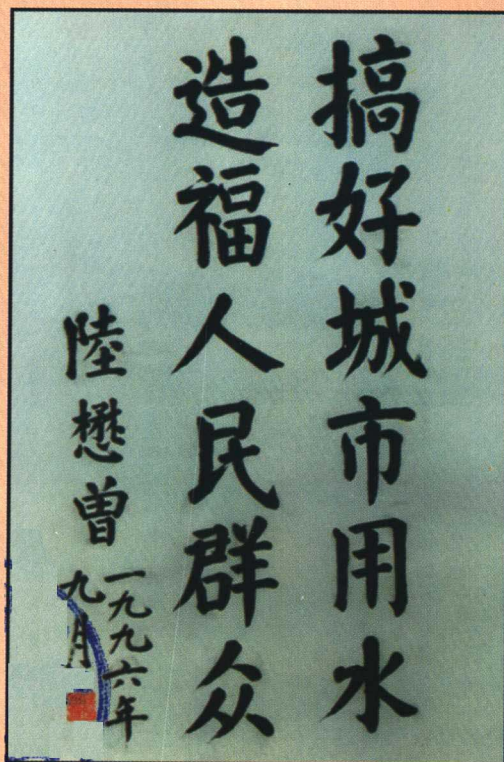 搞好城市用水
造福人民群众
陸懋曽
一九九六年
九月